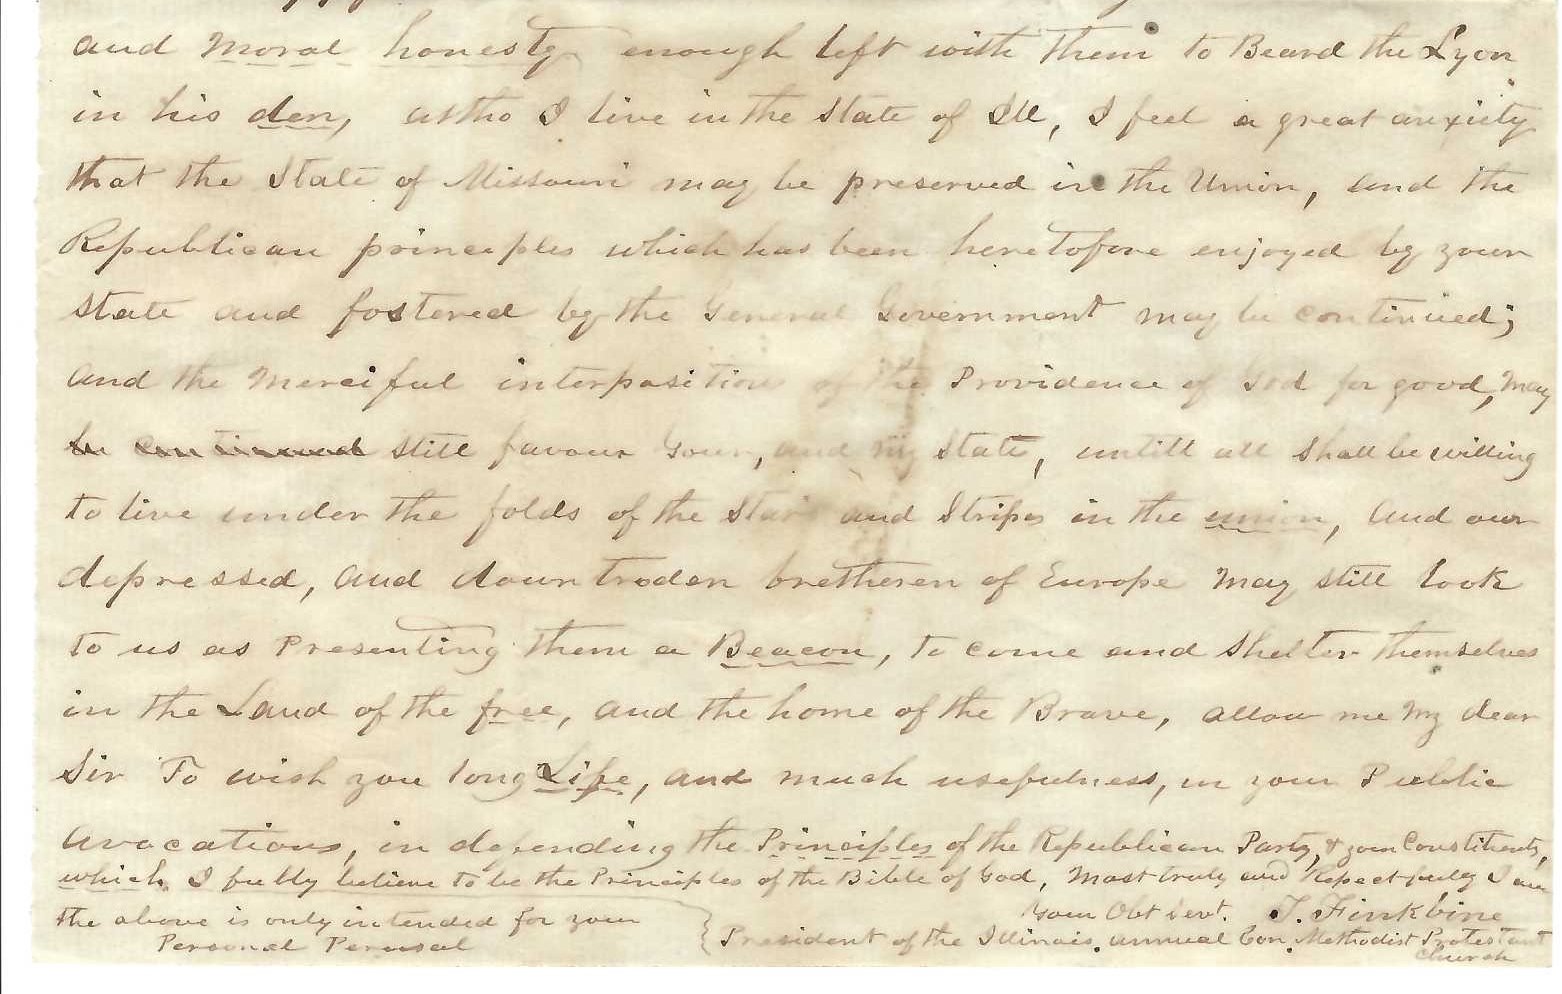 and moral honesty enough left with them to Beard the Lyon
in his den, altho I live in the State of Ill, I feel a great anxiety
that the State of Missouri may be preserved in the Union, and the
Republican principles which has been heretofore enjoyed by your
state and fostered by the General Government may be continued;
and the Merciful interposition of the Providence of God for good, may
be continued still favour your, and my State, untill all shall be willing
to live under the folds of the Stars and Stripes in the union, and our
depressed, and downtroden bretheren of Europe may still look
to us as Presenting them a Beacon, to come and shelter themselves
in the Land of the free, and the home of the Brave, allow me my dear
Sir To wish you long Life, and much usefulness, in your Public
avocations, in defending the Principles of the Republican Party, & your Constituents,
which I fully believe to be the Principles of the Bible of God, Most truly and Respectfully I am
Your Obt Servt. J. Finkbine
the above is only intended for your
Personal Perusal
President of the Illinois annual Con. Methodist Protestant
Church